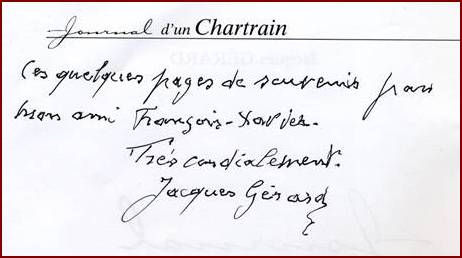 Journal d'un Chartrain
Ces quelques pages de souvenirs pour
mon ami François-Xavier.
Très cordialement.
Jacques Gérard